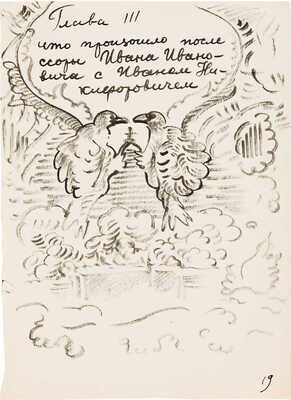 Глава III
что произошло после
ссоры Ивана Ивано-
вича с Иваном Ни-
кифоровичем
19